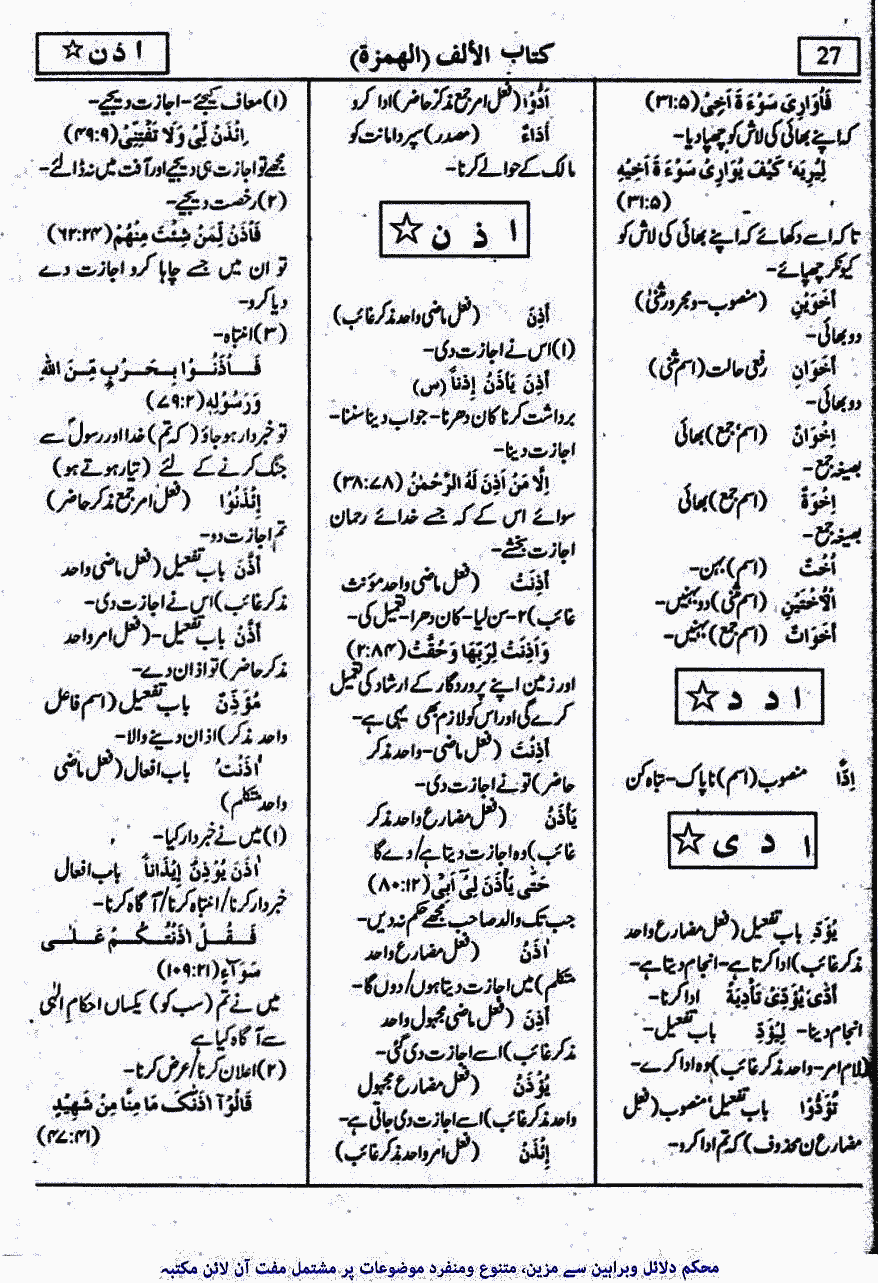 27
كتاب الألف (الهمزة)
اذن ☆
فَاُوَارِیَ سَوْءَةَ اَخِیْ (۳۱:۵)
کہ اپنے بھائی کی لاش کو چھپا دیا-
لِیُرِیَه' كَیْفَ یُوَارِیْ سَوْءَةَ اَخِیْهِ
(۳۱:۵)
تاکہ اسے دکھائے کہ اپنے بھائی کی لاش کو
کیونکر چھپائے-
اَخَوَیْنِ (منصوب-و مجرور مثنیٰ)
دو بھائی-
اَخَوَانِ رفعی حالت (اسم مثنی)
دو بھائی-
اِخْوَانٌ (اسم' جمع) بھائی
بصیغہ جمع-
اِخْوَةٌ (اسم جمع) بھائی
بصیغہ جمع-
اُخْتٌ (اسم) بہن-
اَلْاُخْتَیْنِ (اسم مثنی) دو بہنیں-
اَخَوَاتٌ (اسم جمع) بہنیں-
ا د د ☆
اِدًّا منصوب (اسم) ناپاک-تباہ کن
ا د ی ☆
یُؤَدِّ باب تفعیل (فعل مضارع واحد
مذکر غائب) ادا کرتا ہے-انجام دیتا ہے-
اَدّٰی یُؤَدِّیْ تَأْدِیَةً ادا کرنا-
انجام دینا- لِیُؤَدِّ باب تفعیل-
(لام امر-واحد مذکر غائب) وہ ادا کرے-
تُؤَدُّوْا باب تفعیل' منصوب (فعل
مضارع ن محذوف) کہ تم ادا کرو-
اَدُّوْا (فعل امر جمع مذکر حاضر) ادا کرو
اَدَاءٌ (مصدر) سپرد امانت کو
مالک کے حوالے کرنا-
ا ذ ن ☆
اَذِنَ (فعل ماضی واحد مذکر غائب)
(۱) اس نے اجازت دی-
اَذِنَ یَأْذَنُ اِذْناً (س)
برداشت کرنا کان دھرنا-جواب دینا سننا-
اجازت دینا-
اِلَّا مَنْ اَذِنَ لَهُ الرَّحْمٰنُ (۳۸:۷۸)
سوائے اس کے کہ جسے خدائے رحمان
اجازت بخشے-
اَذِنَتْ (فعل ماضی واحد مؤنث
غائب) ۲-سن لیا-کان دھرا-تعمیل کی-
وَاَذِنَتْ لِرَبِّهَا وَحُقَّتْ (۲:۸۴)
اور زمین اپنے پروردگار کے ارشاد کی تعمیل
کرے گی اور اس کو لازم بھی یہی ہے-
اَذِنْتَ (فعل ماضی-واحد مذکر
حاضر) تو نے اجازت دی-
یَأْذَنُ (فعل مضارع واحد مذکر
غائب) وہ اجازت دیتا ہے/دے گا
حَتّٰی یَأْذَنَ لِیْٓ اَبِیْ (۸۰:۱۲)
جب تک والد صاحب مجھے حکم نہ دیں-
اٰذَنُ (فعل مضارع واحد
متکلم) میں اجازت دیتا ہوں/دوں گا-
اُذِنَ (فعل ماضی مجہول واحد
مذکر غائب) اسے اجازت دی گئی-
یُؤْذَنُ (فعل مضارع مجہول
واحد مذکر غائب) اسے اجازت دی جاتی ہے-
اِئْذَنْ (فعل امر واحد مذکر غائب)
(۱) معاف کیجئے-اجازت دیجیے-
اِئْذَنْ لِّیْ وَلَا تَفْتِنِّیْ (۴۹:۹)
مجھے تو اجازت ہی دیجیے اور آفت میں نہ ڈالئے-
(۲) رخصت دیجیے-
فَأْذَنْ لِّمَنْ شِئْتَ مِنْهُمْ (۶۲:۲۴)
تو ان میں جسے چاہا کرو اجازت دے
دیا کرو-
(۳) انتباہ-
فَأْذَنُوْا بِحَرْبٍ مِّنَ اللّٰهِ
وَرَسُوْلِهٖ (۲۷۹:۲)
تو خبردار ہو جاؤ (کہ تم) خدا اور رسولؐ سے
جنگ کرنے کے لئے (تیار ہوتے ہو)
اِئْذَنُوْا (فعل امر جمع مذکر حاضر)
تم اجازت دو-
اَذَّنَ باب تفعیل (فعل ماضی واحد
مذکر غائب) اس نے اجازت دی-
اَذِّنْ باب تفعیل-(فعل امر واحد
مذکر حاضر) تو اذان دے-
مُؤَذِّنٌ باب تفعیل (اسم فاعل
واحد مذکر) اذان دینے والا-
اٰذَنْتُ باب افعال (فعل ماضی
واحد متکلم)
(۱) میں نے خبردار کیا-
اٰذَنَ یُؤْذِنُ اِیْذَاناً باب افعال
خبردار کرنا/انتباہ کرنا/آگاہ کرنا-
فَقُلْ اٰذَنْتُكُمْ عَلٰى
سَوَآءٍ (۱۰۹:۲۱)
میں نے تم (سب کو) یکساں احکامِ الٰہی
سے آگاہ کیا ہے
(۲) اعلان کرنا/عرض کرنا-
قَالُوْٓا اٰذَنّٰكَ مَا مِنَّا مِنْ شَهِیْدٍ
(۴۷:۴۱)
محکم دلائل وبراہین سے مزین، متنوع ومنفرد موضوعات پر مشتمل مفت آن لائن مکتبہ